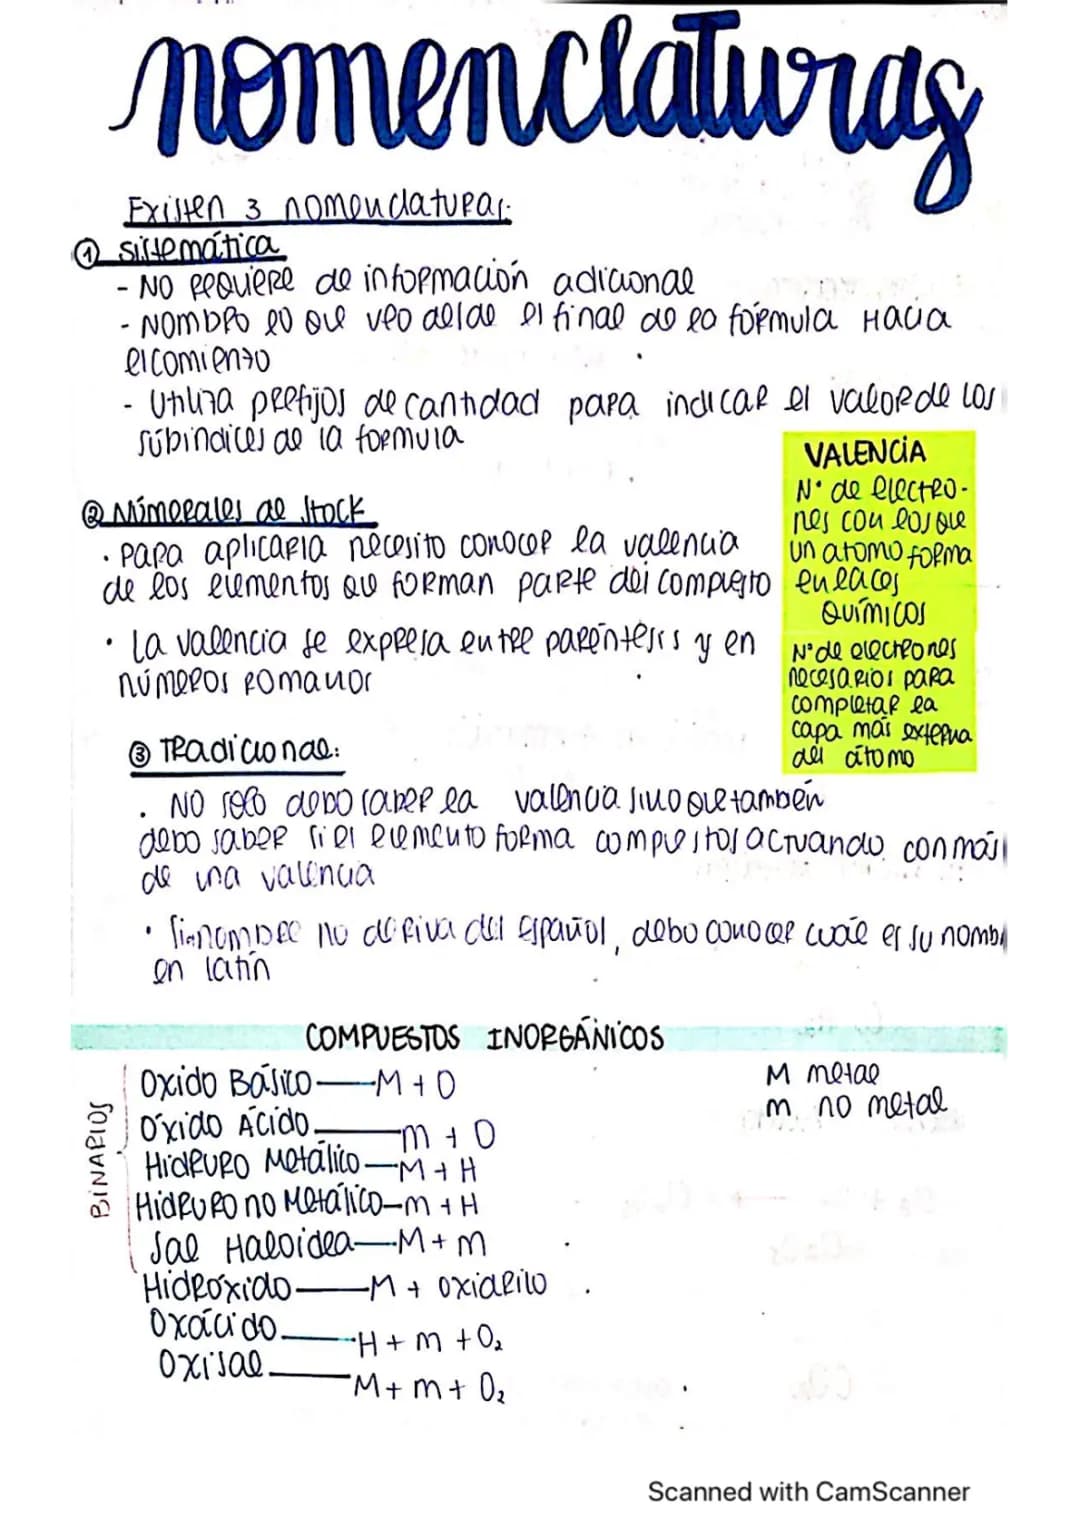 nomenclaturas
Existen 3 nomenclaturas:
① sistemática
- NO REQUIERE de información adicional
- NOMBRO lo que veo desde el final de la fórmula Hacia
el comienzo
- Utiliza prefijos de cantidad para indicar el valor de los
súbindices de la formula
② Númerales de Stock
· Para aplicarla necesito conocer la valencia
de los elementos que forman parte del compuesto
· La valencia se expresa entre paréntesis y en
números romanos
VALENCIA
N° de electro-
nes con los que
un atomo forma
enlaces
químicos
N° de electrones
necesarios para
completar la
capa más externa
del átomo
③ Tradicional:
· NO solo debo saber la valencia sino que también
debo saber si el elemento forma compuestos actuando con más
de una valencia
· Si nombre no deriva del Español, debo conocer cuál es su nomb
en latín
COMPUESTOS INORGÁNICOS
BINARIOS
Oxido Básico — M + O
Óxido Ácido — m + O
Hidruro Metálico — M + H
Hidruro no Metálico — m + H
Sal Haloidea — M + m
Hidróxido — M + oxidrilo
Oxácido — H + m + O₂
Oxisal — M + m + O₂
M metal
m no metal
Scanned with CamScanner